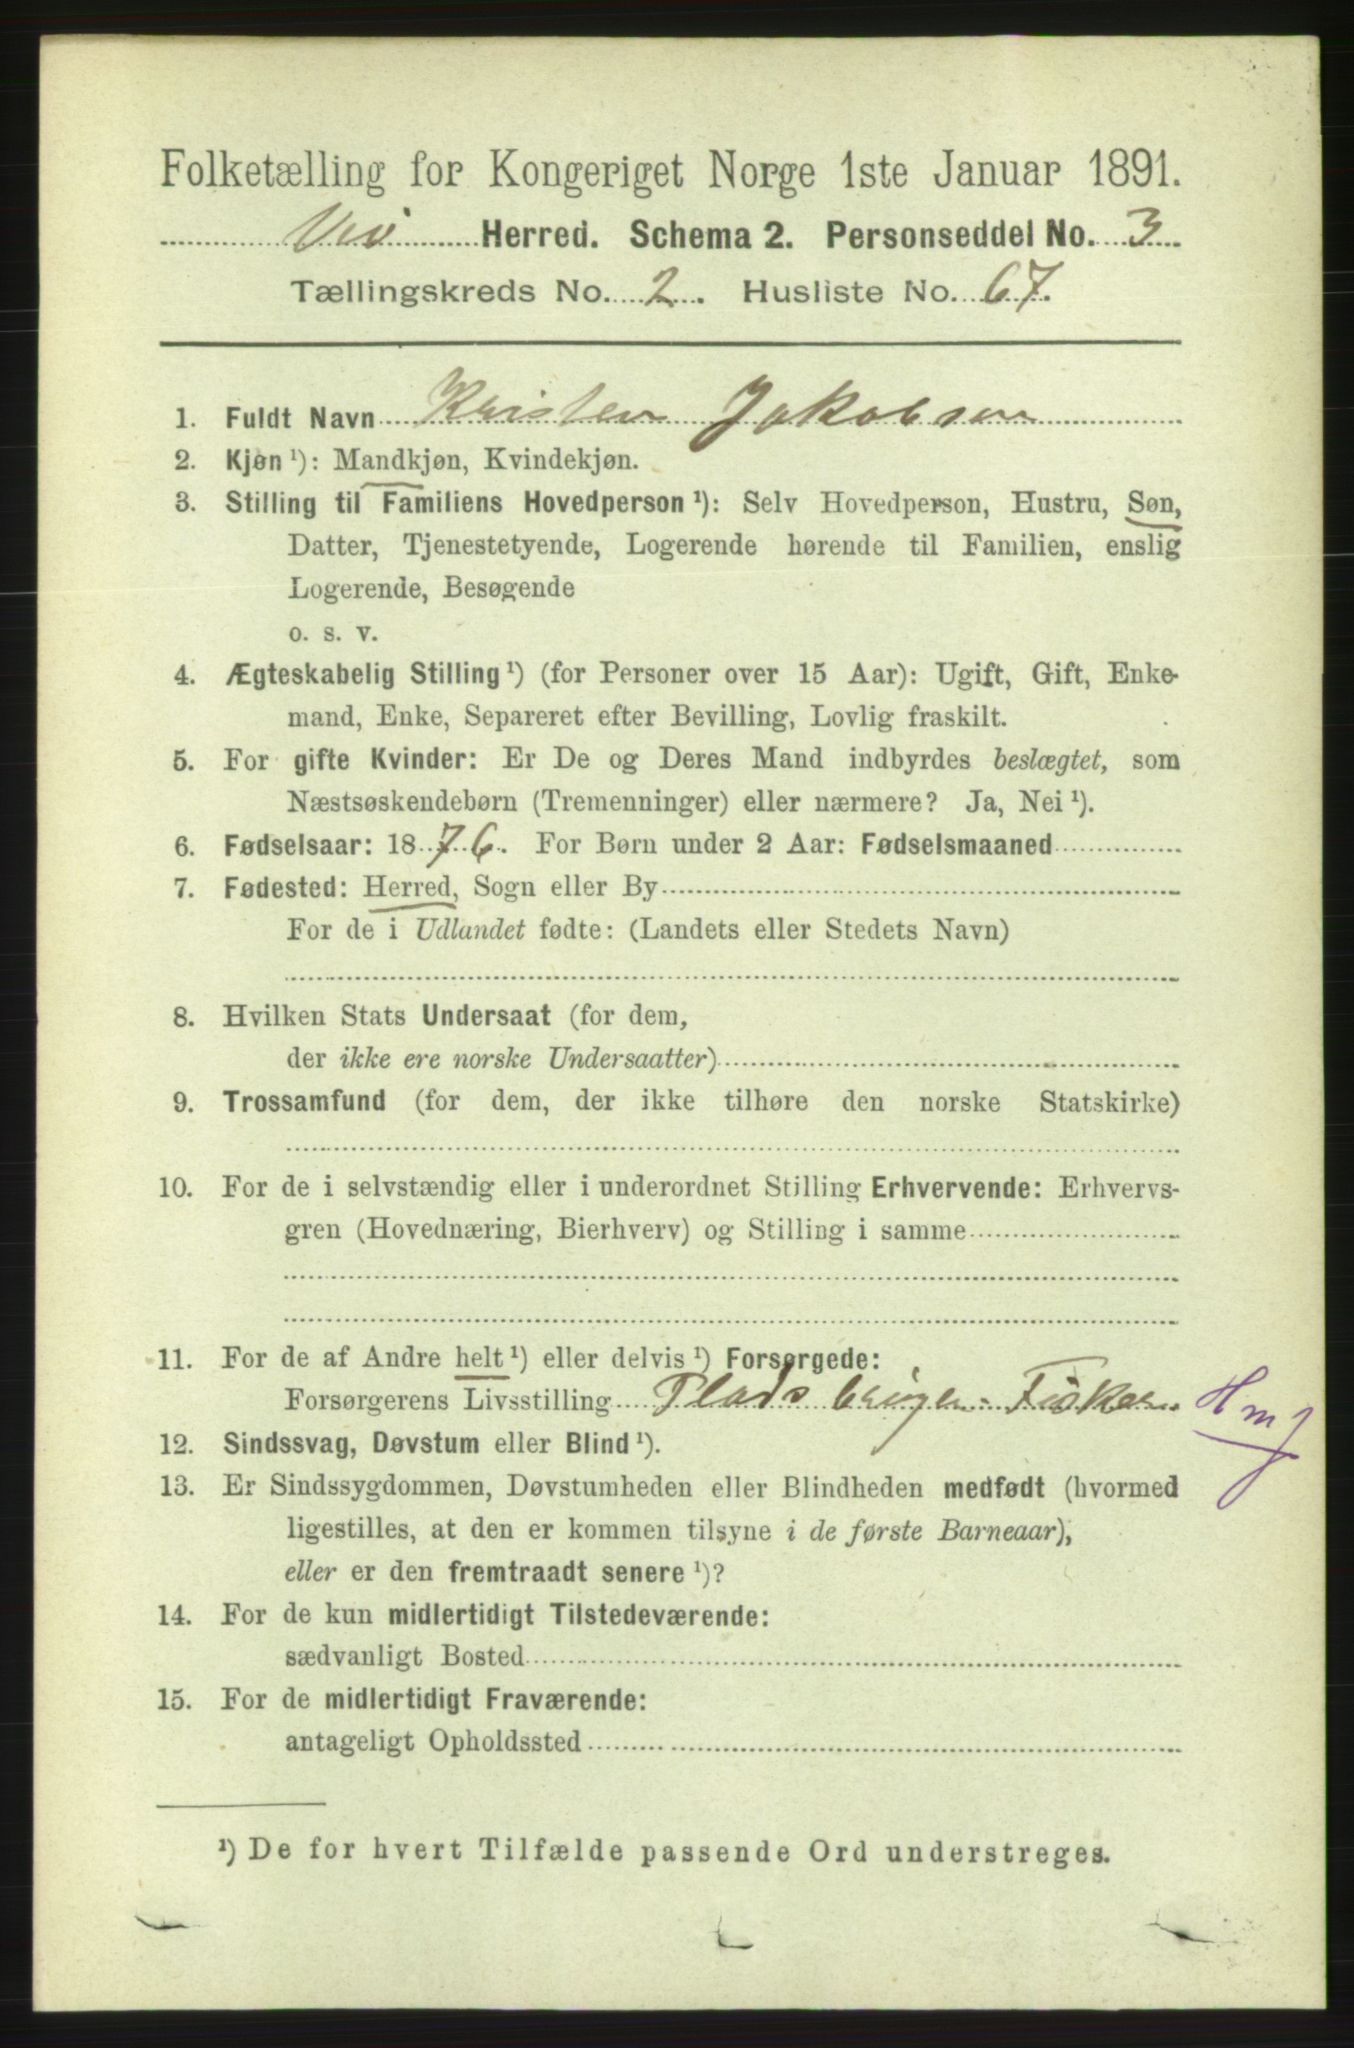 Folketælling for Kongeriget Norge 1ste Januar 1891.
Veø Herred. Schema 2. Personseddel No. 3
Tællingskreds No. 2. Husliste No. 67.
1. Fuldt Navn Kristen Jakobsen
2. Kjøn ¹): Mandkjøn, Kvindekjøn.
3. Stilling til Familiens Hovedperson ¹): Selv Hovedperson, Hustru, Søn,
Datter, Tjenestetyende, Logerende hørende til Familien, enslig
Logerende, Besøgende
o. s. v.
4. Ægteskabelig Stilling ¹) (for Personer over 15 Aar): Ugift, Gift, Enke-
mand, Enke, Separeret efter Bevilling, Lovlig fraskilt.
5. For gifte Kvinder: Er De og Deres Mand indbyrdes beslægtet, som
Næstsøskendebørn (Tremenninger) eller nærmere? Ja, Nei ¹).
6. Fødselsaar: 1876. For Børn under 2 Aar: Fødselsmaaned
7. Fødested: Herred, Sogn eller By
For de i Udlandet fødte: (Landets eller Stedets Navn)
8. Hvilken Stats Undersaat (for dem,
der ikke ere norske Undersaatter)
9. Trossamfund (for dem, der ikke tilhøre den norske Statskirke)
10. For de i selvstændig eller i underordnet Stilling Erhvervende: Erhvervs-
gren (Hovednæring, Bierhverv) og Stilling i samme
11. For de af Andre helt ¹) eller delvis ¹) Forsørgede:
Forsørgerens Livsstilling Pladsbruger. Fisker. Hmf
12. Sindssvag, Døvstum eller Blind ¹).
13. Er Sindssygdommen, Døvstumheden eller Blindheden medfødt (hvormed
ligestilles, at den er kommen tilsyne i de første Barneaar),
eller er den fremtraadt senere ¹)?
14. For de kun midlertidigt Tilstedeværende:
sædvanligt Bosted
15. For de midlertidigt Fraværende:
antageligt Opholdssted
¹) De for hvert Tilfælde passende Ord understreges.